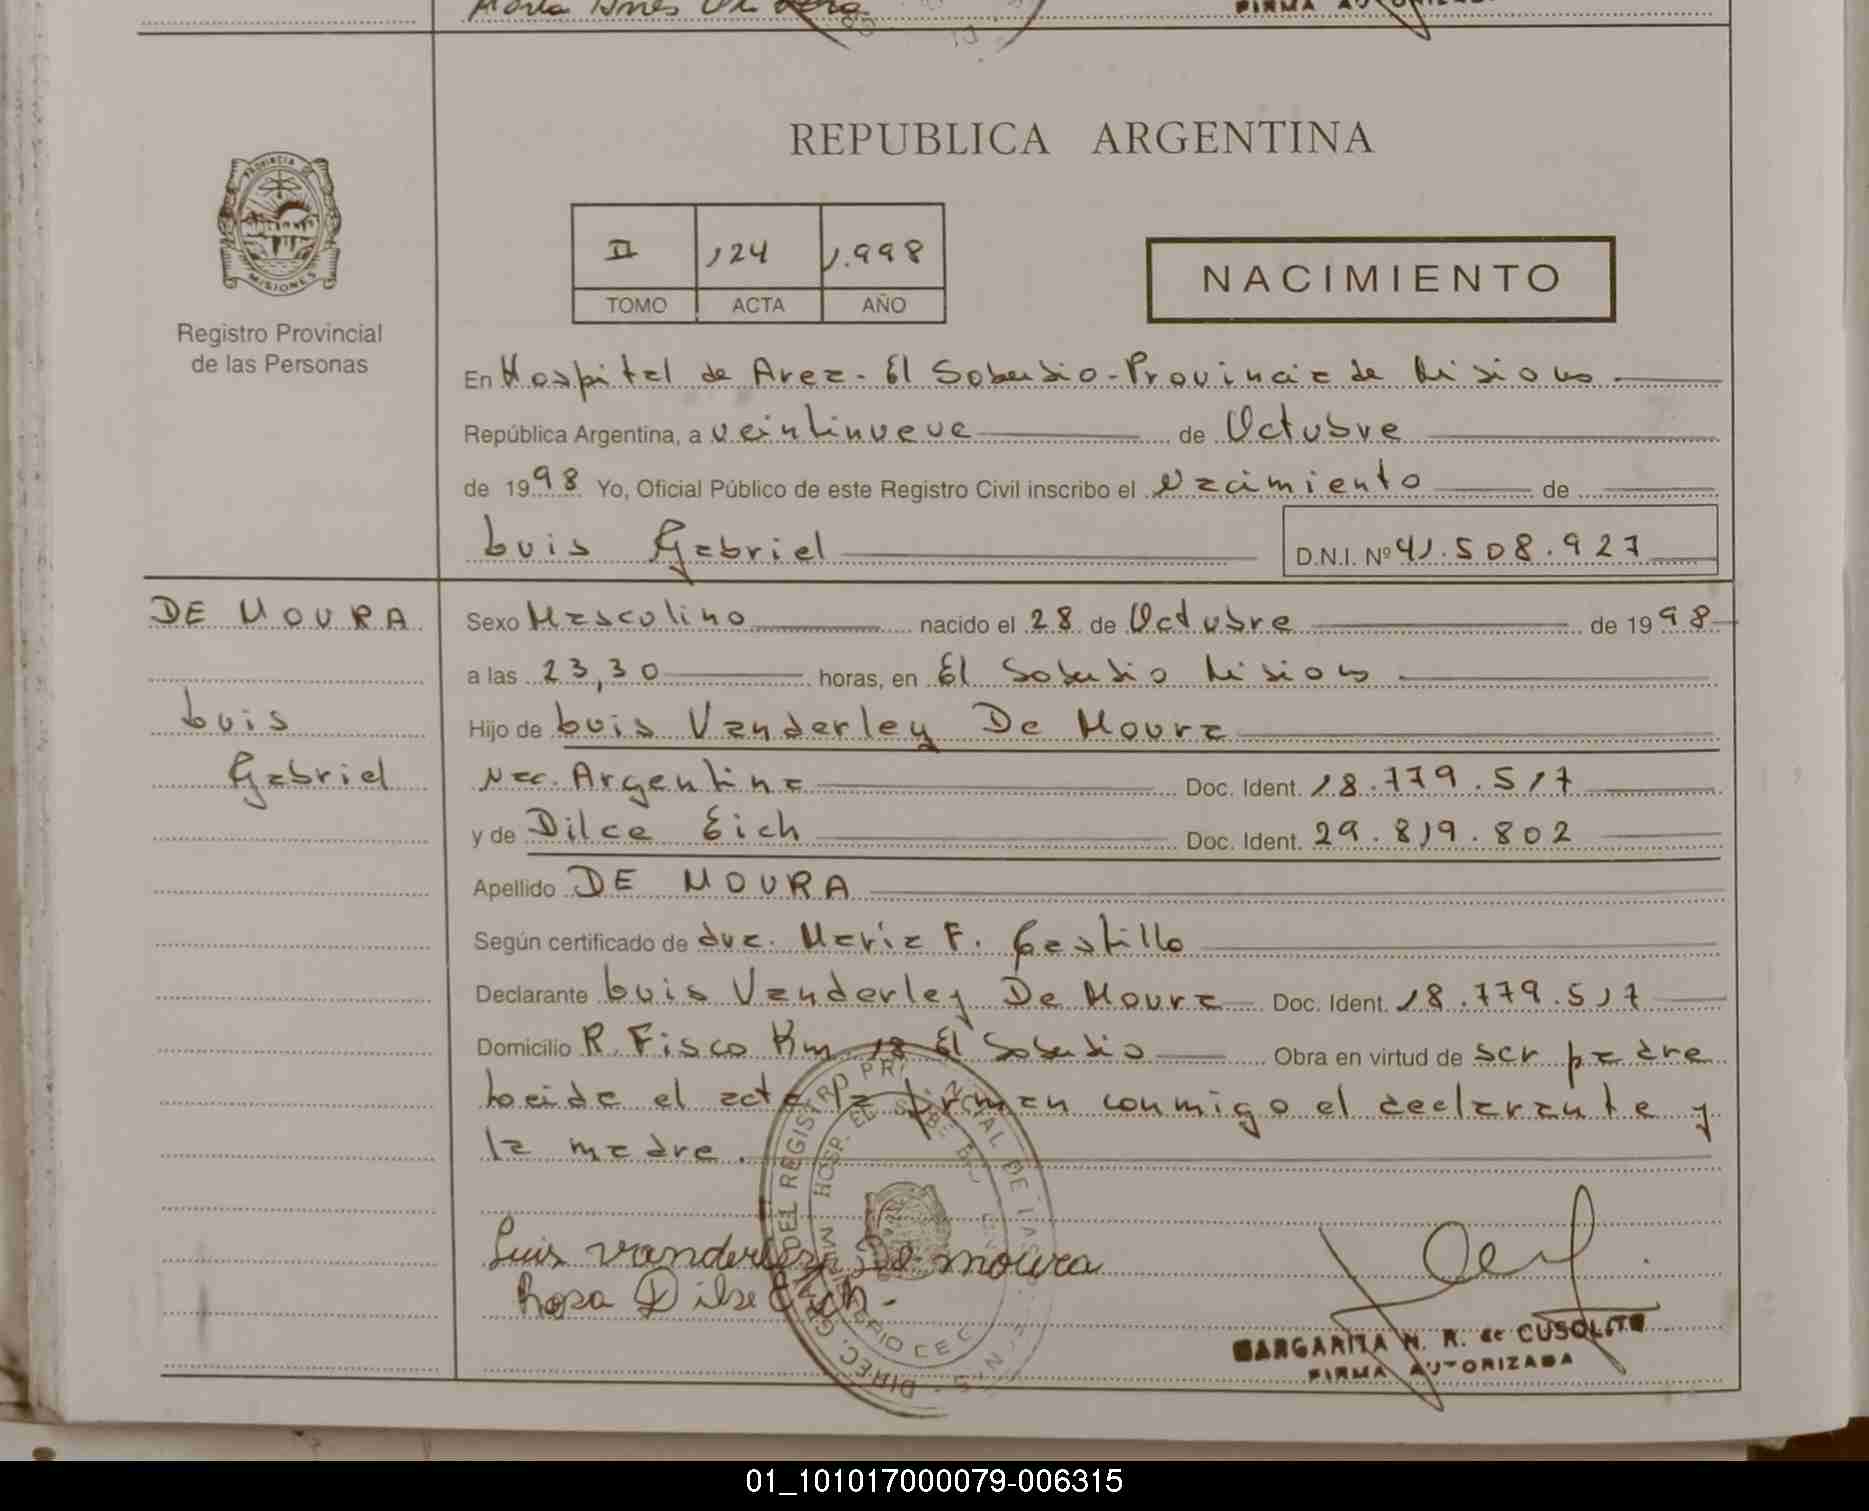 FIRMA
REPUBLICA ARGENTINA
PROVINCIA
MISIONES
Registro Provincial
de las Personas
II 124 1.998
TOMO ACTA AÑO
NACIMIENTO
En Hospital de Area - El Soberbio - Provincia de Misiones
República Argentina, a veintinueve de Octubre
de 1998 Yo, Oficial Público de este Registro Civil inscribo el Nacimiento de
Luis Gabriel D.N.I. Nº 41.508.927
DE MOURA
Luis
Gabriel
Sexo Masculino nacido el 28 de Octubre de 1998
a las 23,30 horas, en El Soberbio Misiones
Hijo de Luis Vanderley De Moura
Nac. Argentina Doc. Ident. 18.779.517
y de Dilce Eich Doc. Ident. 29.819.802
Apellido DE MOURA
Según certificado de dra. Maria F. Castillo
Declarante Luis Vanderley De Moura Doc. Ident. 18.779.517
Domicilio R. Fisco Km 18 El Soberbio Obra en virtud de ser padre
Leida el acta la firman conmigo el declarante y
la madre.
Luis vanderley De moura
Rosa Dilse Eich
MARGARITA N. R. de CUSOLITO
FIRMA AUTORIZADA
01_101017000079-006315